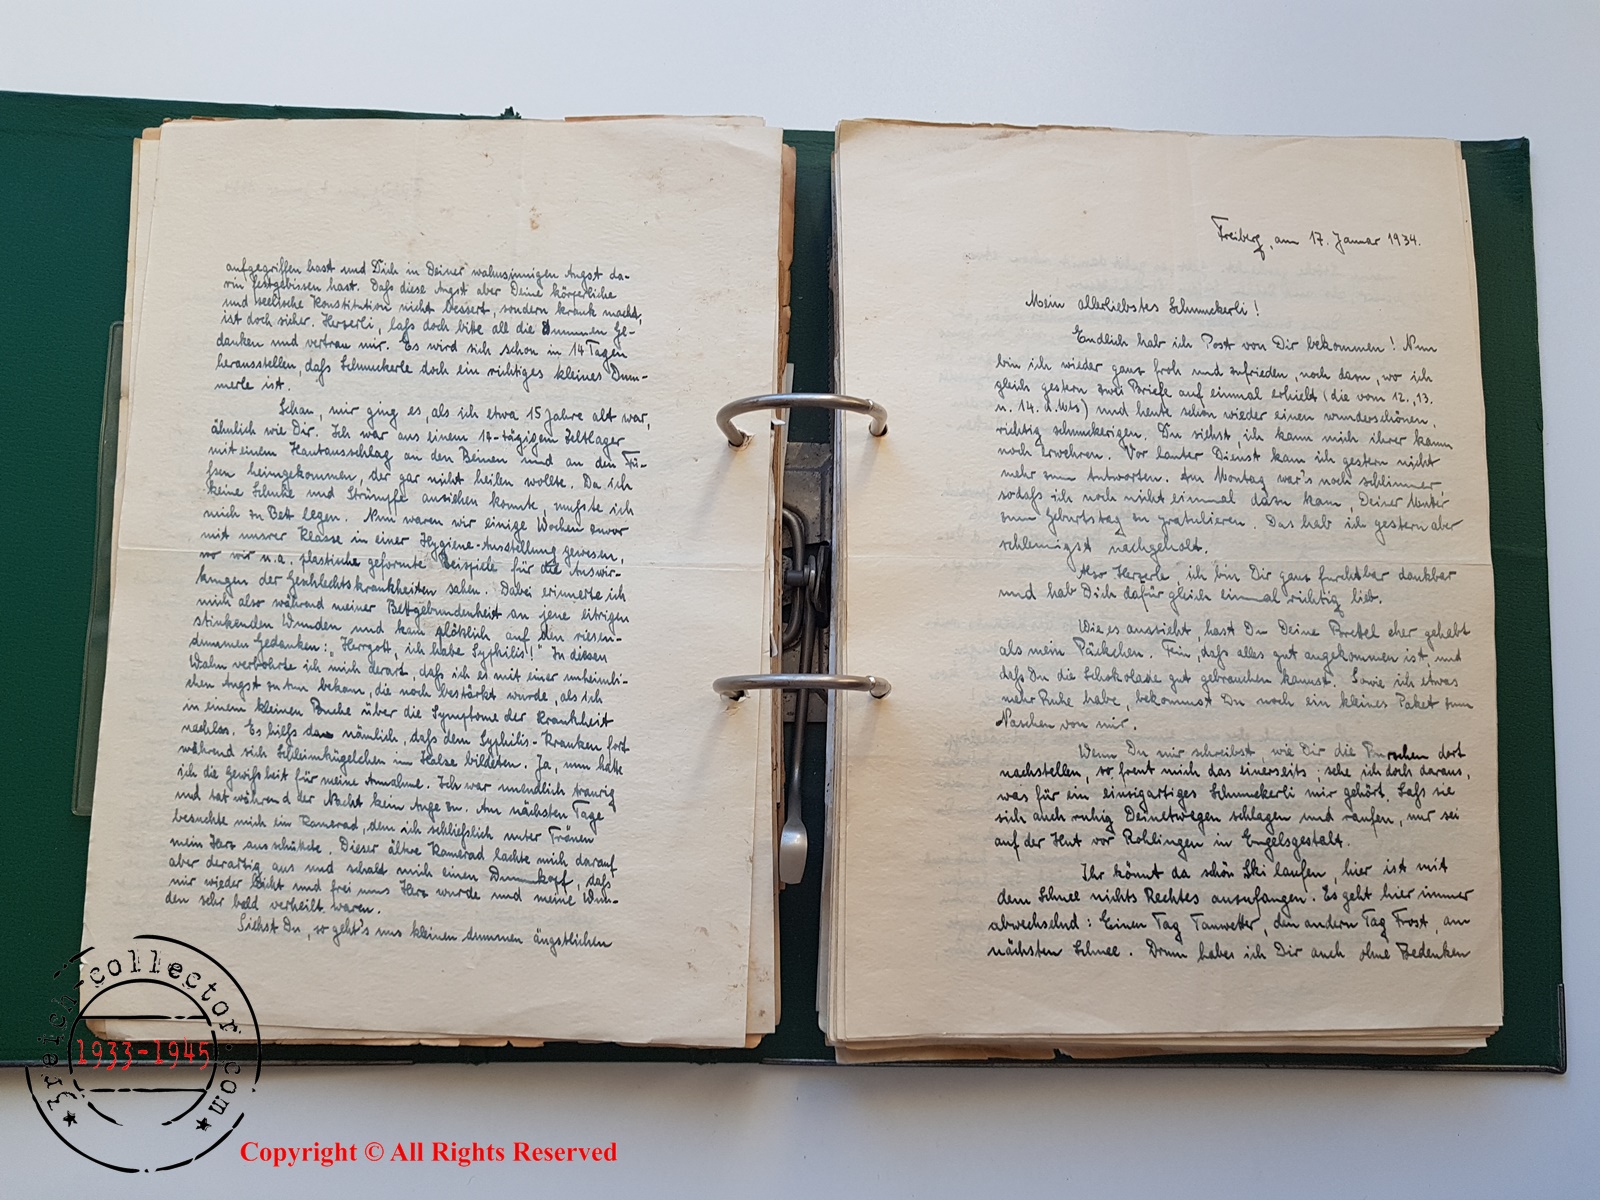 aufgegriffen hast und Dich in Deiner wahnsinnigen Angst da-
rin festgebissen hast. Daß diese Angst aber Deine körperliche
und seelische Konstitution nicht bessert, sondern krank macht,
ist doch sicher. Herzerli, laß doch bitte all die dummen Ge-
danken und vertrau mir. Es wird sich schon in 14 Tagen
herausstellen, daß Schmuckerle doch ein richtiges kleines Dum-
merle ist.
Schau, mir ging es, als ich etwa 15 Jahre alt war,
ähnlich wie Dir. Ich war aus einem 14-tägigem Zeltlager
mit einem Hautausschlag an den Beinen und an den Fü-
ßen heimgekommen, der gar nicht heilen wollte. Da ich
keine Schuhe und Strümpfe anziehen konnte, mußte ich
mich zu Bett legen. Nun waren wir einige Wochen zuvor
mit unsrer Klasse in einer Hygiene-Ausstellung gewesen,
wo wir u.a. plastische geformte Beispiele für die Auswir-
kungen der Geschlechtskrankheiten sahen. Dabei erinnerte ich
mich also während meiner Bettgebundenheit an jene eitrigen
stinkenden Wunden und kam plötzlich auf den riesen-
dummen Gedanken: „Herrgott, ich habe Syphilis!" In diesen
Wahn verbohrte ich mich derart, daß ich es mit einer unheimli-
chen Angst zu tun bekam, die noch bestärkt wurde, als ich
in einem kleinen Buche über die Symptome der Krankheit
nachlas. Es hieß da nämlich, daß dem Syphilis-Kranken fort
während sich Schleimkügelchen im Halse bildeten. Ja, nun hatte
ich die Gewißheit für meine Annahme. Ich war unendlich traurig
und tat während der Nacht kein Auge zu. Am nächsten Tage
besuchte mich ein Kamerad, dem ich schließlich unter Tränen
mein Herz ausschüttete. Dieser ältre Kamerad lachte mich darauf
aber derartig aus und schalt mich einen Dummkopf, daß
mir wieder leicht und frei ums Herz wurde und meine Wun-
den sehr bald verheilt waren.
Siehst Du, so geht's uns kleinen dummen ängstlichen
Freiberg, am 17. Januar 1934.
Mein allerliebstes Schmuckerli!
Endlich hab ich Post von Dir bekommen! Nun
bin ich wieder ganz froh und zufrieden, noch dazu, wo ich
gleich gestern zwei Briefe auf einmal erhielt (die vom 12., 13.
u. 14. d. Mts) und heute schon wieder einen wunderschönen,
richtig schmuckerigen. Du siehst, ich kann mich ihrer kaum
noch erwehren. Vor lauter Dienst kam ich gestern nicht
mehr zum Antworten. Am Montag war's noch schlimmer,
sodaß ich noch nicht einmal dazu kam, Deiner Mutter
zum Geburtstag zu gratulieren. Das hab ich gestern aber
schleunigst nachgeholt.
Also Herzerle ich bin Dir ganz furchtbar dankbar
und hab Dich dafür gleich einmal richtig lieb.
Wie es aussieht, hast Du Deine eher gehabt
als mein Päckchen. Fein, daß alles gut angekommen ist, und
daß Du die Schokolade gut gebrauchen kannst. Sowie ich etwas
mehr Ruhe habe, bekommst Du noch ein kleines Paket zum
Naschen von mir.
Wenn Du mir schreibst, wie Dir die Burschen dort
nachstellen, so freut mich das einerseits; sehe ich doch daraus,
was für ein einzigartiges Schmuckerli mir gehört. Laß sie
sich auch ruhig Deinetwegen schlagen und raufen, nur sei
auf der Hut vor Rohlingen in Engelsgestalt.
Ihr könnt da schön Ski laufen, hier ist mit
dem Schnee nichts Rechtes anzufangen. Es geht hier immer
abwechselnd: Einen Tag Tauwetter, den andern Tag Frost, am
nächsten Schnee. Drum habe ich Dir auch ohne Bedenken
3reich-collector.com
1933-1945
Copyright © All Rights Reserved